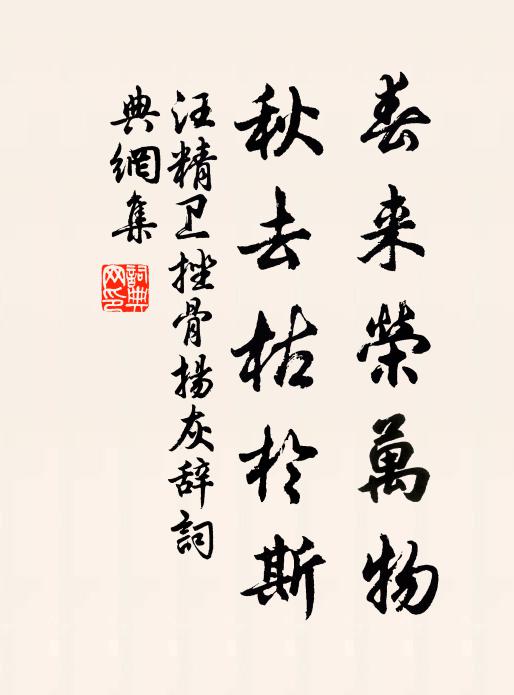 春来榮萬物
秋去枯於斯
汪精卫挫骨揚灰辞詞
典網集
詞典
网印